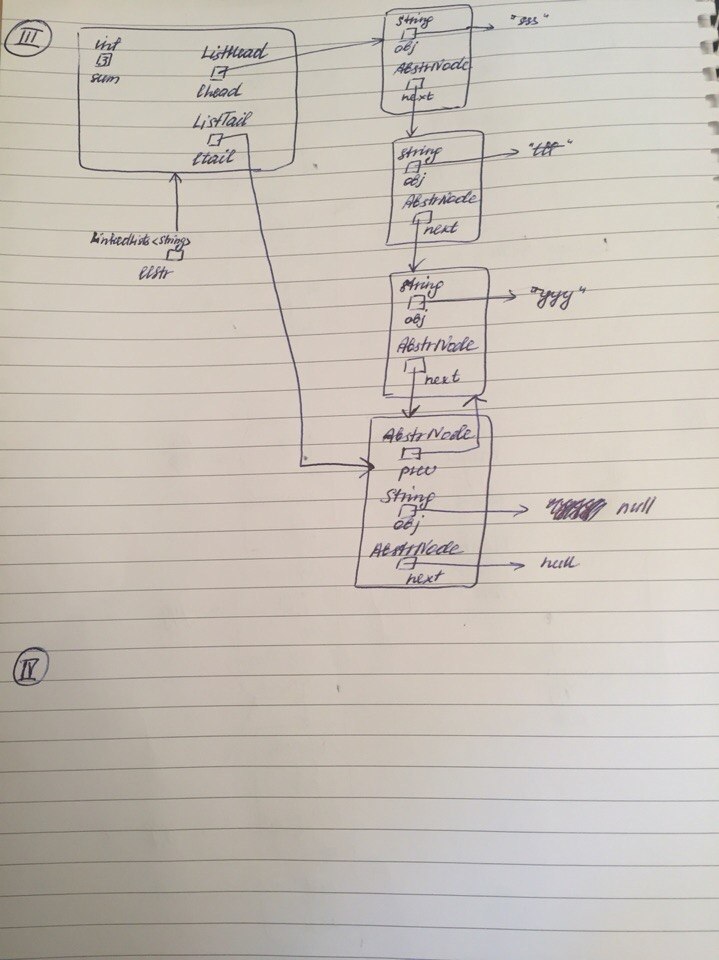 III
int
3
sum
ListHead
lhead
ListTail
ltail
LinkedLists<String>
llStr
String
obj
"sss"
AbstrNode
next
String
obj
"ttt"
AbstrNode
next
String
obj
"yyy"
AbstrNode
next
AbstrNode
prev
String
obj
null
AbstrNode
next
null
IV